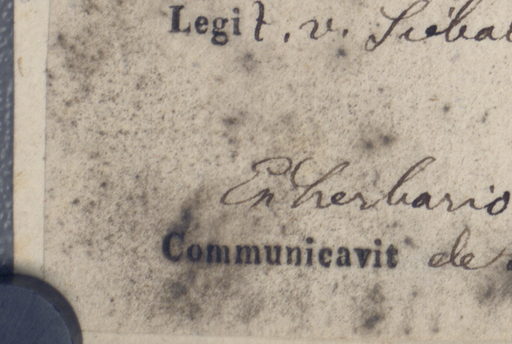 Legit, v. Siebal
En herbario
Communicavit de